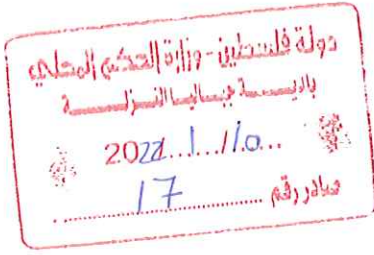 دولة فلسطين - وزارة الحكم المحلي
بلديـــة جباليا النزلـــة
2022/1/10
صادر رقم 17